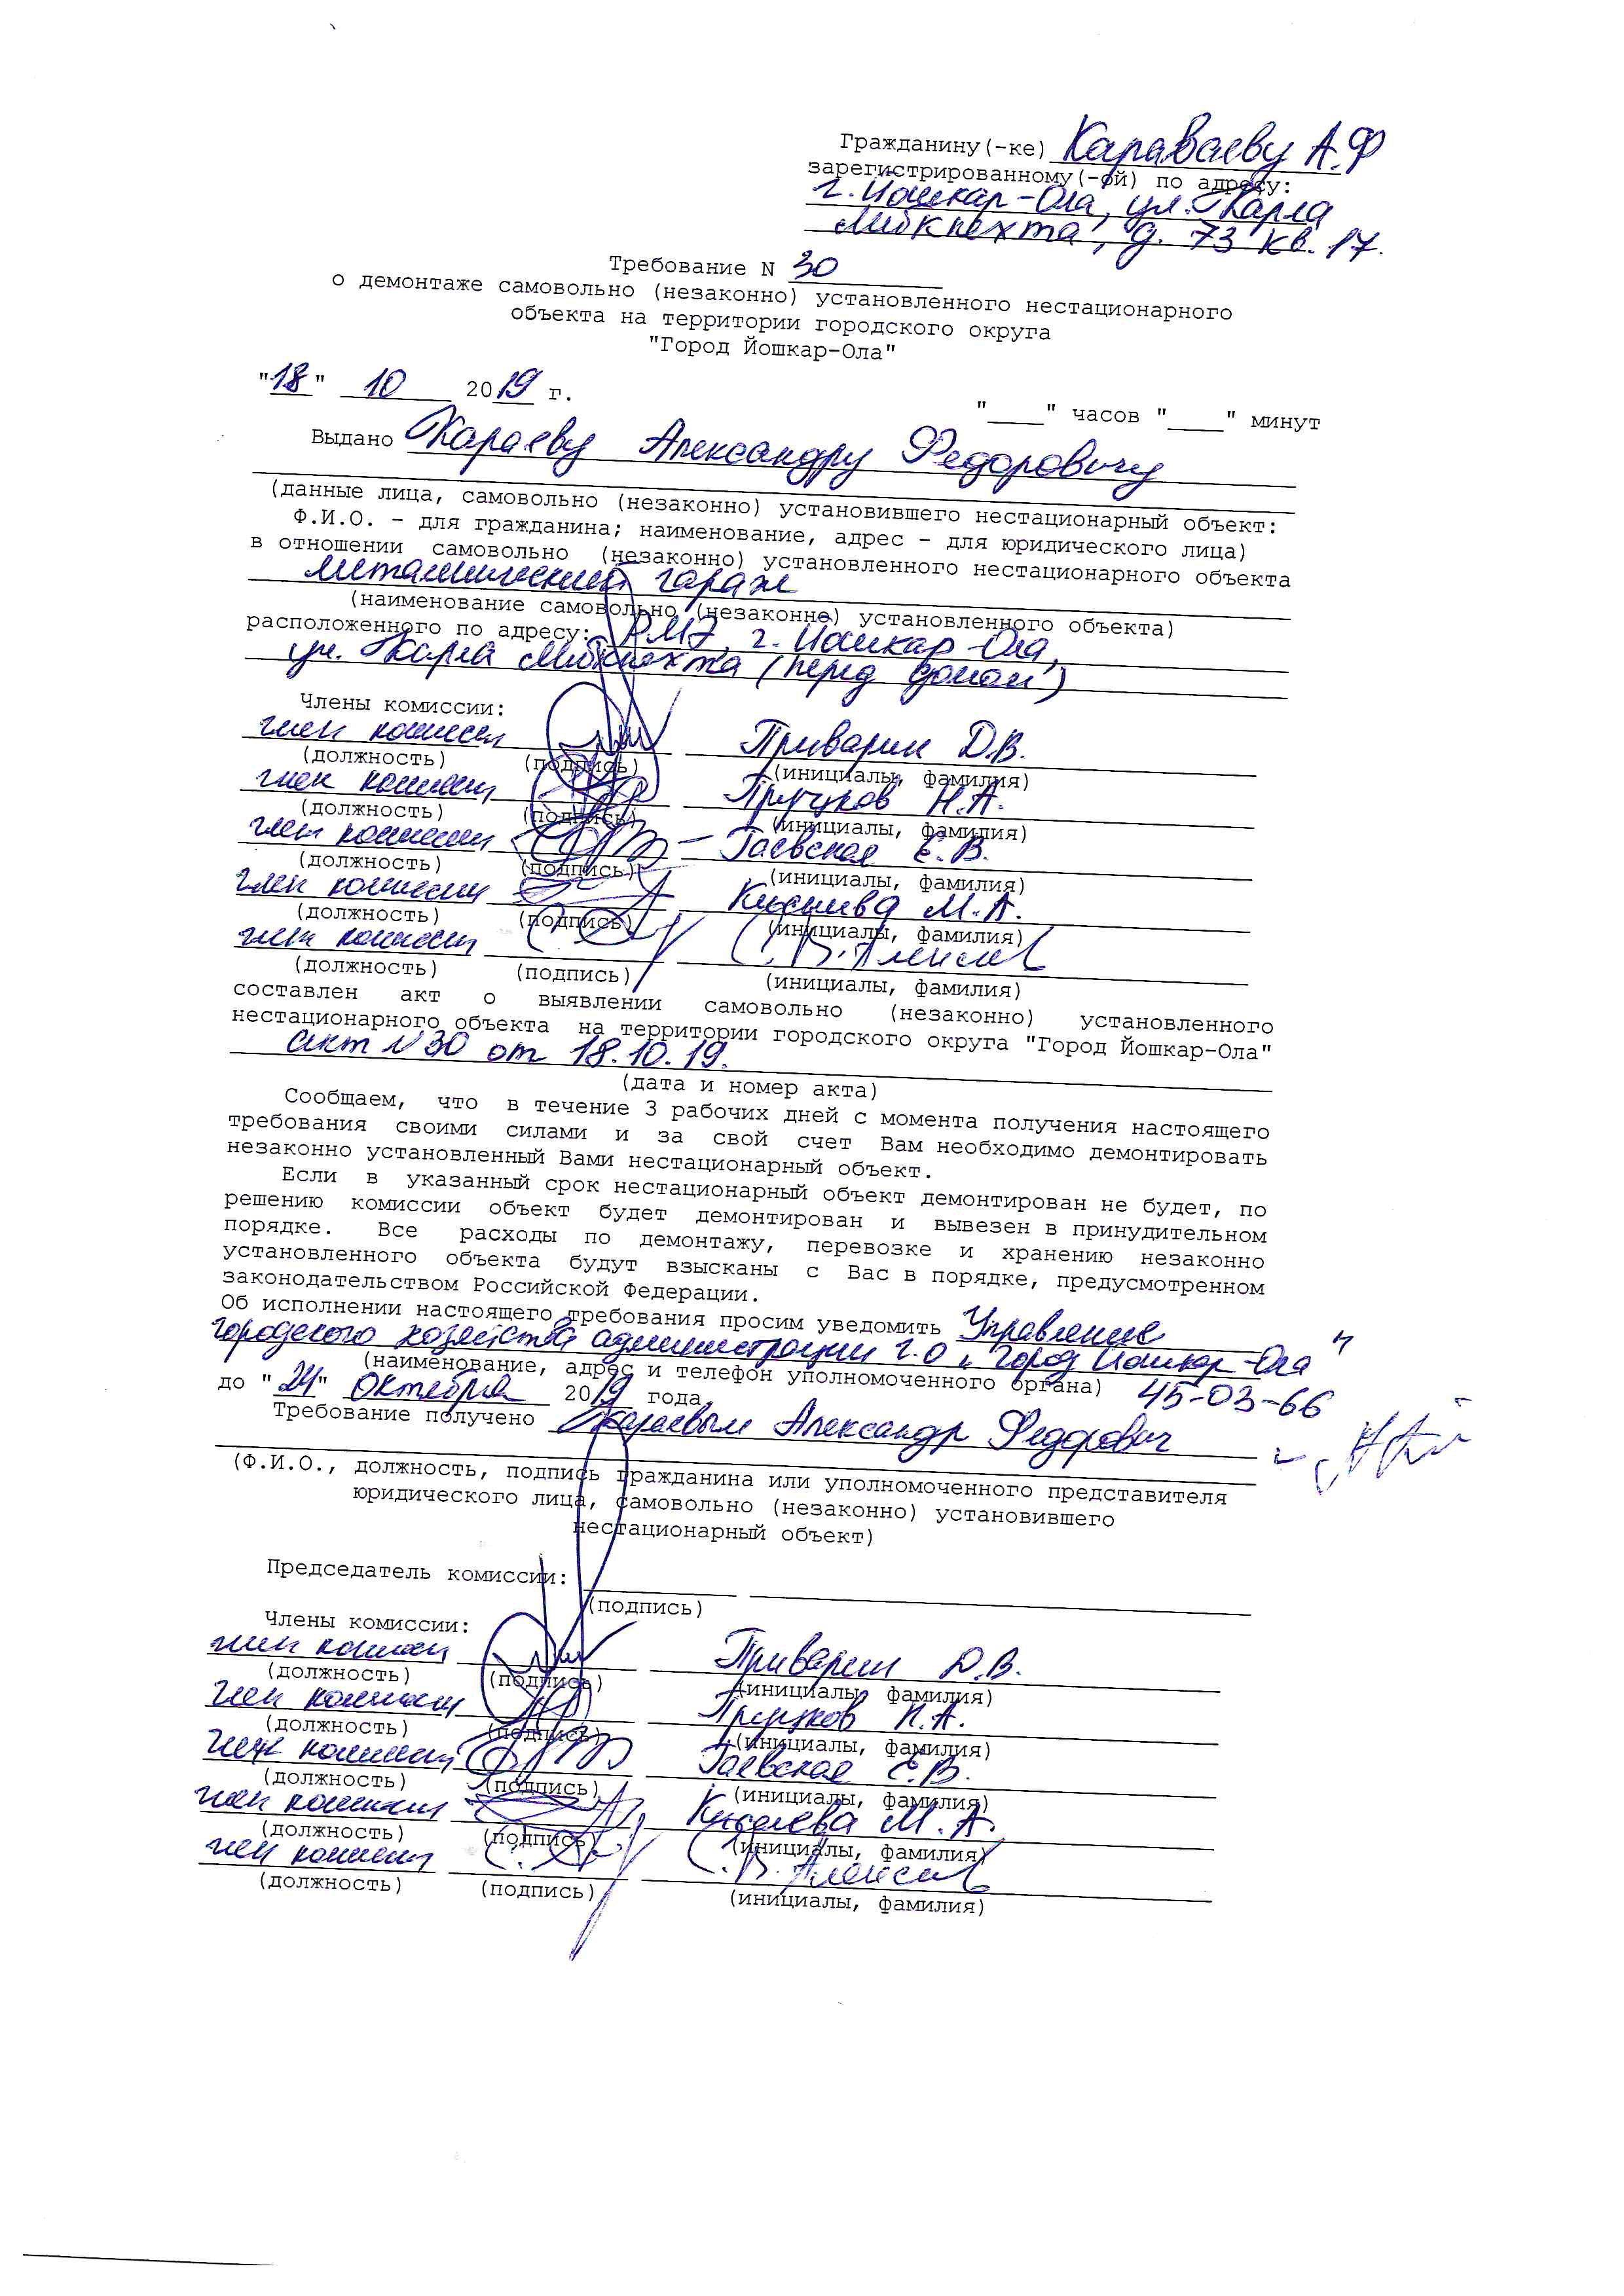 Гражданину(-ке) Караваеву А.Ф
зарегистрированному(-ой) по адресу:
г. Йошкар-Ола, ул. Карла
Либкнехта, д. 73 кв. 17.
Требование N 30
о демонтаже самовольно (незаконно) установленного нестационарного
объекта на территории городского округа
"Город Йошкар-Ола"
"18" 10 2019 г.
"____" часов "____" минут
Выдано Караеву Александру Федоровичу
(данные лица, самовольно (незаконно) установившего нестационарный объект:
Ф.И.О. - для гражданина; наименование, адрес - для юридического лица)
в отношении самовольно (незаконно) установленного нестационарного объекта
металлический гараж
(наименование самовольно (незаконно) установленного объекта)
расположенного по адресу: РМЭ, г. Йошкар-Ола,
ул. Карла Либкнехта (перед домом)
Члены комиссии:
член комиссии Приварин Д.В.
(должность) (подпись) (инициалы, фамилия)
член комиссии Пручков Н.А.
(должность) (подпись) (инициалы, фамилия)
член комиссии Гаевская Е.В.
(должность) (подпись) (инициалы, фамилия)
член комиссии М.А.
(должность) (подпись) (инициалы, фамилия)
член комиссии С.В. Алексеев
(должность) (подпись) (инициалы, фамилия)
составлен акт о выявлении самовольно (незаконно) установленного
нестационарного объекта на территории городского округа "Город Йошкар-Ола"
акт N 30 от 18.10.19.
(дата и номер акта)
Сообщаем, что в течение 3 рабочих дней с момента получения настоящего
требования своими силами и за свой счет Вам необходимо демонтировать
незаконно установленный Вами нестационарный объект.
Если в указанный срок нестационарный объект демонтирован не будет, по
решению комиссии объект будет демонтирован и вывезен в принудительном
порядке. Все расходы по демонтажу, перевозке и хранению незаконно
установленного объекта будут взысканы с Вас в порядке, предусмотренном
законодательством Российской Федерации.
Об исполнении настоящего требования просим уведомить Управление
городского хозяйства администрации г.о "Город Йошкар-Ола"
(наименование, адрес и телефон уполномоченного органа) 45-03-66
до "24" Октября 2019 года
Требование получено Караевым Александр Федорович
(Ф.И.О., должность, подпись гражданина или уполномоченного представителя
юридического лица, самовольно (незаконно) установившего
нестационарный объект)
Председатель комиссии:
(подпись)
Члены комиссии:
член комиссии Приварин Д.В.
(должность) (подпись) (инициалы, фамилия)
член комиссии Пручков Н.А.
(должность) (подпись) (инициалы, фамилия)
член комиссии Гаевская Е.В.
(должность) (подпись) (инициалы, фамилия)
член комиссии Киселева М.А.
(должность) (подпись) (инициалы, фамилия)
член комиссии С.В. Алексеев
(должность) (подпись) (инициалы, фамилия)